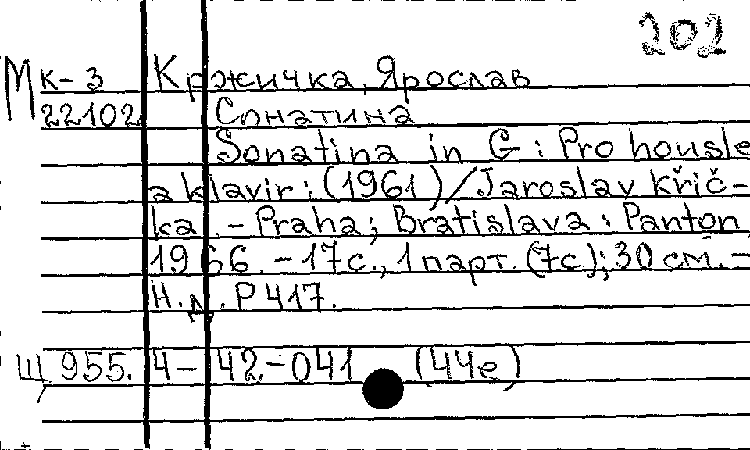 202
М к-3 Кржичка, Ярослав
22102 Сонатина
Sonatina in G : Pro housle
a klavir : (1961) / Jaroslav Křič-
ka. - Praha ; Bratislava : Panton,
1966. - 17 с., 1 парт. (7с) ; 30 см. -
Н.д. P 417.
Щ 955. 4-42-041 (44е)